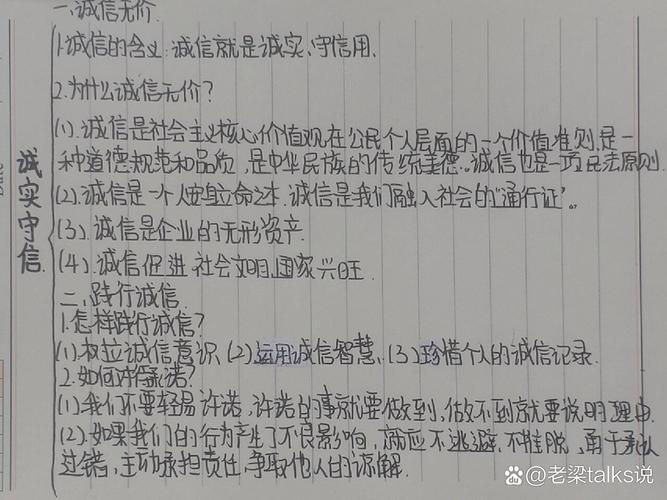 一、诚信无价.
1.诚信的含义:诚信就是诚实、守信用.
2.为什么诚信无价?
(1).诚信是社会主义核心价值观在公民个人层面的一个价值准则,是一
种道德规范和品质,是中华民族的传统美德。诚信也是一项民法原则.
(2).诚信是一个人安身立命之本.诚信是我们融入社会的“通行证”。
(3).诚信是企业的无形资产.
(4).诚信促进社会文明,国家兴旺.
二、践行诚信.
1.怎样践行诚信?
(1).树立诚信意识.(2).运用诚信智慧.(3).珍惜个人的诚信记录.
2.如何对待承诺?
(1)我们不要轻易许诺,许诺的事就要做到,做不到就要说明理由.
(2).如果我们的行为产生了不良影响,就应不逃避.不推脱,勇于承认
过错,主动承担责任,争取他人的谅解.
诚实守信
@老梁talks说